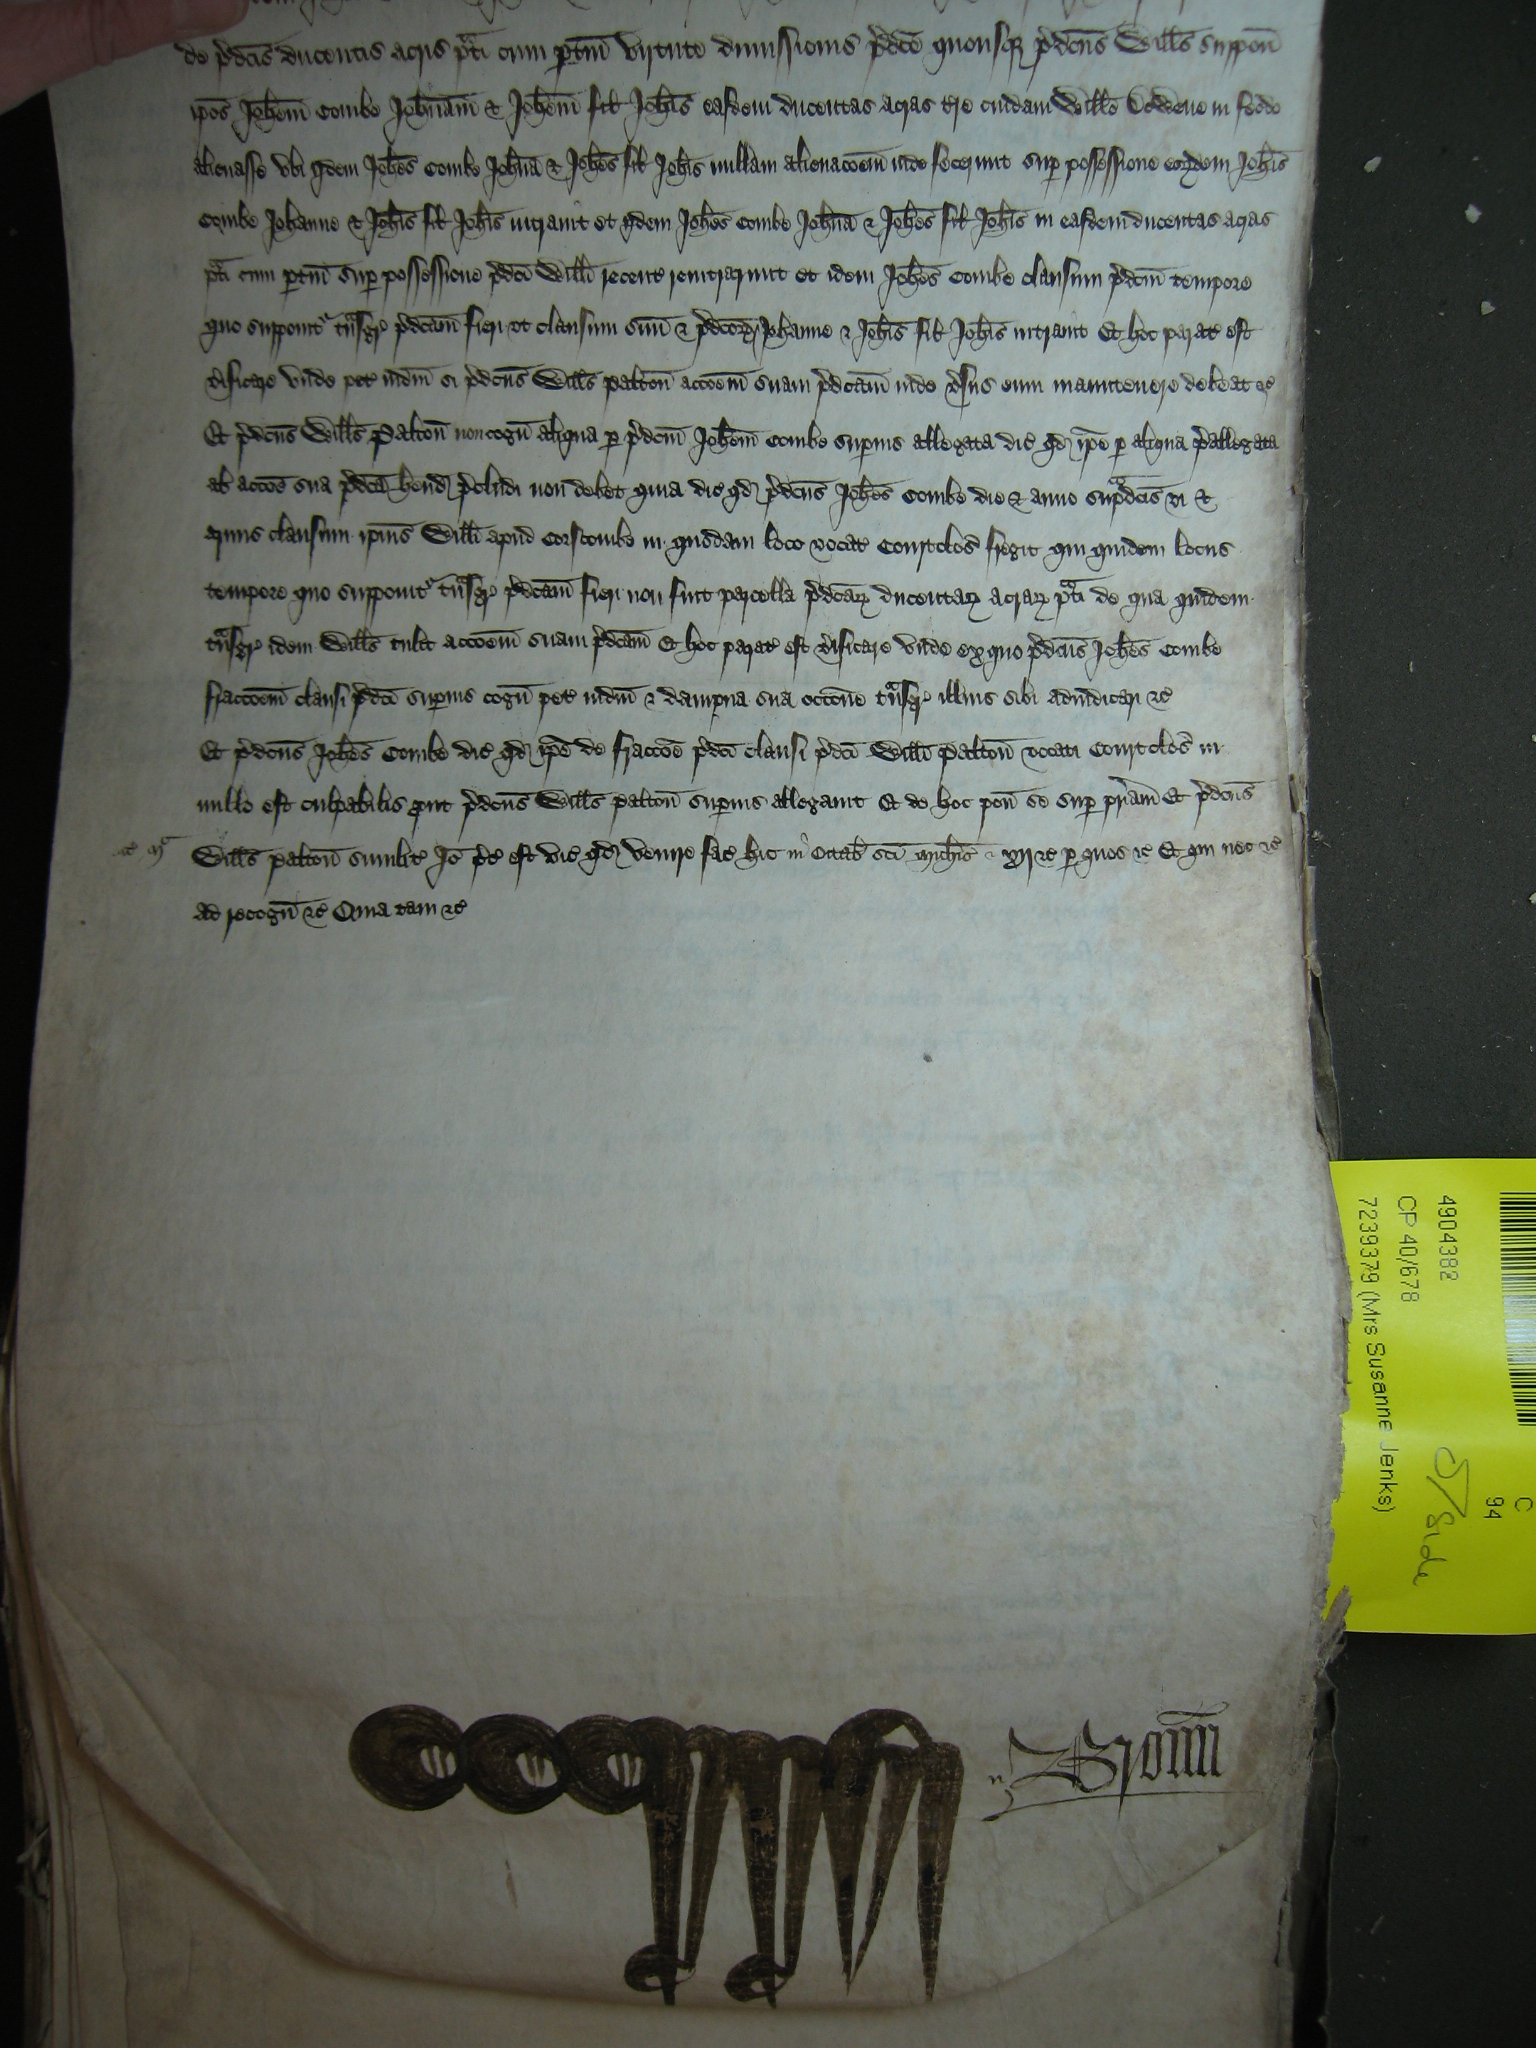 de p̄dcīs ducentis acris p̄ti cum ptiñ virtute dimissionis p̄dcē quousq̨ p̄dcūs Wills̄ suppoñ
ip̄os Joh̄em Combe Joh̄nam & Joh̄em fil Joh̄is easdem ducentas acras tr̄e cuidam Willō in feodo
alienasse vbi ijdem Joh̄es Combe Joh̄na & Joh̄es fil Joh̄is nullam alienacōem inde fecerunt sup possessione eordem Joh̄is
Combe Johanne & Joh̄is fil Joh̄is intrauit et ijdem Joh̄es Combe Joh̄na & Joh̄es fil Joh̄is in easdem ducentas acras
p̄ti cum ptiñ sup possessione p̄dcī Willī recent reintrarunt et idem Joh̄es Combe clausum p̄dcm̄ tempore
quo supponit' tn̄sgr̄ p̄dcam̄ fieri vt clausum suū & p̄dcor̨ Johanne & Joh̄is fil Joh̄is intrauit Et hoc parat est
v̄ificare vnde pet iudm̄ si p̄dcūs Wills̄ Paltoñ accōem suam p̄dcam̄ inde v̄sus eum manutenere debeat &c̄
Et p̄dcūs Wills̄ Paltoñ non cogñ aliqua p p̄dcm̄ Joh̄em Combe superius allegata dic̄ qd̄ ip̄e p aliqua p̄allegata
ab accōe sua p̄dcā hend̄ p̄cludi non debet quia dic̄ qd̄ p̄dcūs Joh̄es Combe die & anno sup̄dcīs vi &
armis clausum ip̄ius Willī apud Corscombe in quodam loco vocat̄ Courtclos̄ fregit qui quidem locus
tempore quo supponit' tn̄sgr̄ p̄dcam̄ fieri non fuit parcella p̄dcar̨ ducentar̨ acrar̨ p̄ti de qua quidem
tn̄sgr̄ idem Wills̄ tulit accōem suam p̄dcam̄ Et hoc parat est v̄ificare vnde ex quo p̄dcūs Joh̄es Combe
fraccōem clausi p̄dcī superius cogñ pet iudm̄ & dampna sua occōne tn̄sgr̄ illius sibi adiudicari &c̄
Et p̄dcūs Joh̄es Combe dic̄ qd̄ ip̄e de fraccōe p̄dcī clausi p̄dcī Willī Paltoñ vocati Courtclos̄ in
nullo est culpabilis put p̄dcūs Wills̄ Paltoñ superius allegauit Et de hoc poñ se sup pr̄iam̄ Et p̄dcūs
Wills̄ Paltoñ similit̄ Jō p̄c̄ est vic̄ qd̄ venire fac̄ hic in Octab̄ sc̄i Mich̄is xij &c̄ p quos &c̄ Et qui nec &c̄
ad recogñ &c̄ Quia tam &c̄
Broun
4904382
CP 40/678
7239379 (Mrs Susanne Jenks)
C
94